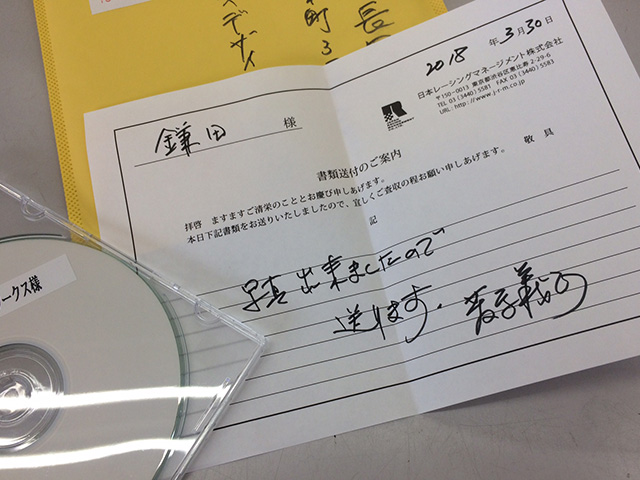 長
町3
デザイ
2018 年 3月 30日
日本レーシングマネージメント株式会社
〒150-0013 東京都渋谷区恵比寿 2-29-6
TEL 03 (3440) 5581 FAX 03 (3440) 5583
URL: http://www.j-r-m.co.jp
鎌田 様
書類送付のご案内
拝啓 ますますご清栄のこととお慶び申しあげます。
本日下記書類をお送りいたしましたので、宜しくご査収の程お願い申しあげます。
敬具
記
写真 出来ましたので
送ります.
ークス様